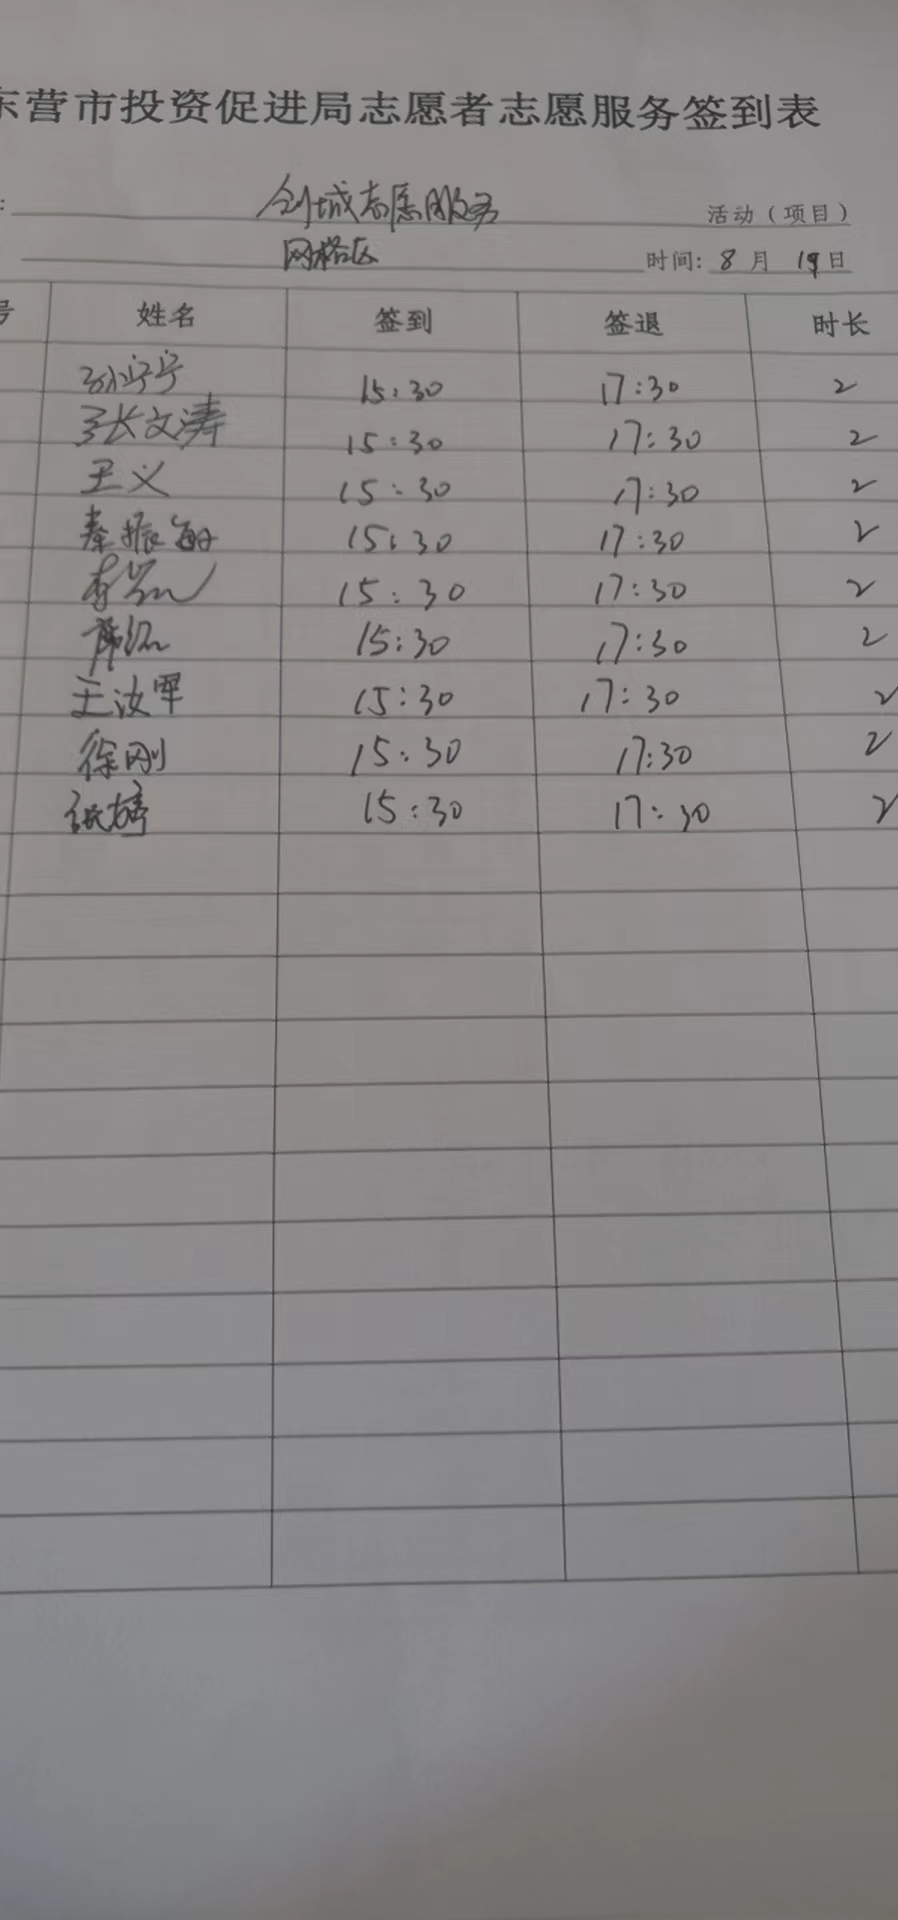 东营市投资促进局志愿者志愿服务签到表
: 创城志愿服务 活动（项目）
网格区 时间: 8 月 19 日
号 姓名 签到 签退 时长
孙宁宁 15:30 17:30 2
张文涛 15:30 17:30 2
王义 15:30 17:30 2
秦振海 15:30 17:30 2
李 15:30 17:30 2
15:30 17:30 2
王汝军 15:30 17:30 2
徐刚 15:30 17:30 2
张婷 15:30 17:30 2